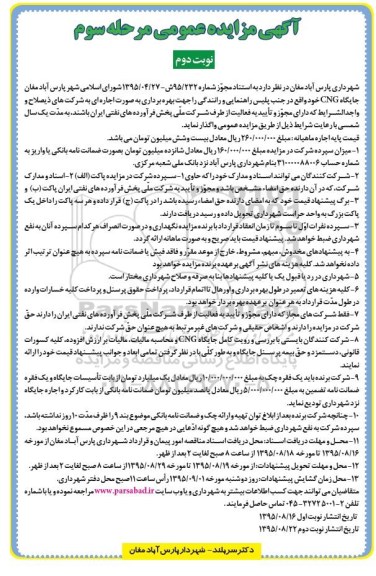 آگهی مزایده عمومی مرحله سوم
نوبت دوم
شهرداری پارس آباد مغان در نظر دارد به استناد مجوز شماره ۹۵/۲۳۲ش-۱۳۹۵/۰۴/۲۷ شورای اسلامی شهر پارس آباد مغان
جایگاه CNG خود واقع در جنب پلیس راهنمایی و رانندگی را جهت بهره برداری به صورت اجاره ای به شرکت های ذیصلاح و
واجد الشرایط که دارای مجوز و تأیید به فعالیت از طرف شرکت ملّی پخش فرآورده های نفتی ایران باشند، به مدّت یک سال
شمسی با رعایت شرایط ذیل از طریق مزایده عمومی واگذار نماید.
قیمت پایه اجاره ماهیانه: مبلغ ۲۶۰/۰۰۰/۰۰۰ ریال معادل بیست و شش میلیون تومان می باشد.
۱-میزان سپرده شرکت در مزایده مبلغ ۱۶۰/۰۰۰/۰۰۰ ریال معادل شانزده میلیون تومان بصورت ضمانت نامه بانکی یا واریز به
شماره حساب ۳۱۰۰۰۰۰۸۸۰۰۶ بنام شهرداری پارس آباد نزد بانک ملی شعبه مرکزی.
۲-شرکت کنندگان می توانند اسناد و مدارک خود را که حاوی ۱-سپرده شرکت در مزایده پاکت (الف) ۲-اسناد و مدارک
شرکت، که در آن دارنده حق امضاء مشخص باشد و مجوّز و تأیید به شرکت ملّی پخش فرآورده های نفتی ایران پاکت (ب) و
۳-برگ پیشنهاد قیمت خود که به امضای دارنده حق امضاء رسیده باشد را در پاکت (ج) قرار داده و هر سه پاکت را داخل یک
پاکت بزرگ به واحد حراست شهرداری تحویل داده و رسید دریافت دارند.
۳-سپرده نفرات اوّل تا سوم تا زمان انعقاد قرارداد با برنده مزایده نگهداری و در صورت انصراف هر کدام سپرده آنان به نفع
شهرداری ضبط خواهد شد. پیشنهاد قیمت باید صریح و به صورت ماهانه ارائه گردد.
۴-به پیشنهادهای مخدوش، مبهم، مشروط، خارج از موعد مقرّر و فاقد فیش یا ضمانت نامه سپرده به هیچ عنوان ترتیب اثر
داده نخواهد شد. کلیه هزینه های نشر آگهی بر عهده برنده مزایده خواهد بود
۵-شهرداری در رد یا قبول یک یا کلیه پیشنهادها بنا به صرفه و صلاح شهرداری مختار است.
۶-کلیه هزینه های تعمیر در طول بهره برداری و اورهال تا اتمام قرارداد، پرداخت حقوق پرسنل و پرداخت کلیه خسارات وارده
در طول مدّت قرارداد به هر عنوان بر عهده بهره بردار خواهد بود.
۷-فقط شرکت های مجاز که دارای مجوّز و تأیید به فعالیت از طرف شرکت ملّی پخش فرآورده های نفتی ایران را دارند حقّ
شرکت در مزایده را دارند و اشخاص حقیقی و شرکت های غیر مرتبط به هیچ عنوان حقّ شرکت ندارند.
۸-شرکت کنندگان بایستی با بررسی و رویت کامل جایگاه CNG و محاسبه مالیات، مالیات بر ارزش افزوده، کلیه کسورات
قانونی، دستمزد و حق بیمه پرسنل جایگاه و به طور کلّی با در نظر گرفتن تمامی ابعاد و جوانب پیشنهاد قیمت خود را ارائه
نمایند
۹-شرکت برنده باید یک فقره چک به مبلغ ۱۰/۰۰۰/۰۰۰/۰۰۰ ریال معادل یک میلیارد تومان از بابت تأسیسات جایگاه و یک فقره
ضمانت نامه تضمین به مبلغ ۵/۰۰۰/۰۰۰/۰۰۰ ریال معادل پانصد میلیون تومان ضمانت نامه بانکی از بابت کارکرد و اجاره جایگاه
نزد شهرداری تودیع نماید.
۱۰-چنانچه شرکت برنده بعد از ابلاغ توان تهیه و ارائه چک و ضمانت نامه بانکی موضوع بند ۹ را ظرف مدّت ۱۰ روز نداشته باشد،
سپرده شرکت به نفع شهرداری ضبط خواهد شد و هیچ گونه ادّعایی در هیچ مرجعی در این خصوص مسموع نخواهد بود.
۱۱-محل و مهلت دریافت اسناد: محل دریافت اسناد مناقصه امور پیمان و قرارداد شهرداری پارس آباد مغان از مورخه
۱۳۹۵/۰۸/۱۶ تا مورخه ۱۳۹۵/۰۸/۱۸ از ساعت ۸ صبح لغایت ۲ بعد از ظهر.
۱۲-محل و مهلت تحویل پیشنهادات: از مورخه ۱۳۹۵/۰۸/۱۹ تا مورخه ۱۳۹۵/۰۸/۲۹ از ساعت ۸ صبح لغایت ۲ بعد از ظهر.
۱۳-محل زمان گشایش پیشنهادات: روز دوشنبه مورخه ۱۳۹۵/۰۹/۰۱ رأس ساعت ۱۱ صبح محل دفتر شهرداری.
متقاضیان می توانند جهت کسب اطلاعات بیشتر به شهرداری و یا وب سایت www.parsabad.ir مراجعه نموده و یا با شماره
تلفن ۲-۳۲۷۲۵۰۰۱-۰۴۵ تماس حاصل فرمایند.
تاریخ انتشار نوبت اول ۱۳۹۵/۰۸/۱۶
تاریخ انتشار نوبت دوم ۱۳۹۵/۰۸/۲۲
دکتر سربلند - شهردار پارس آباد مغان